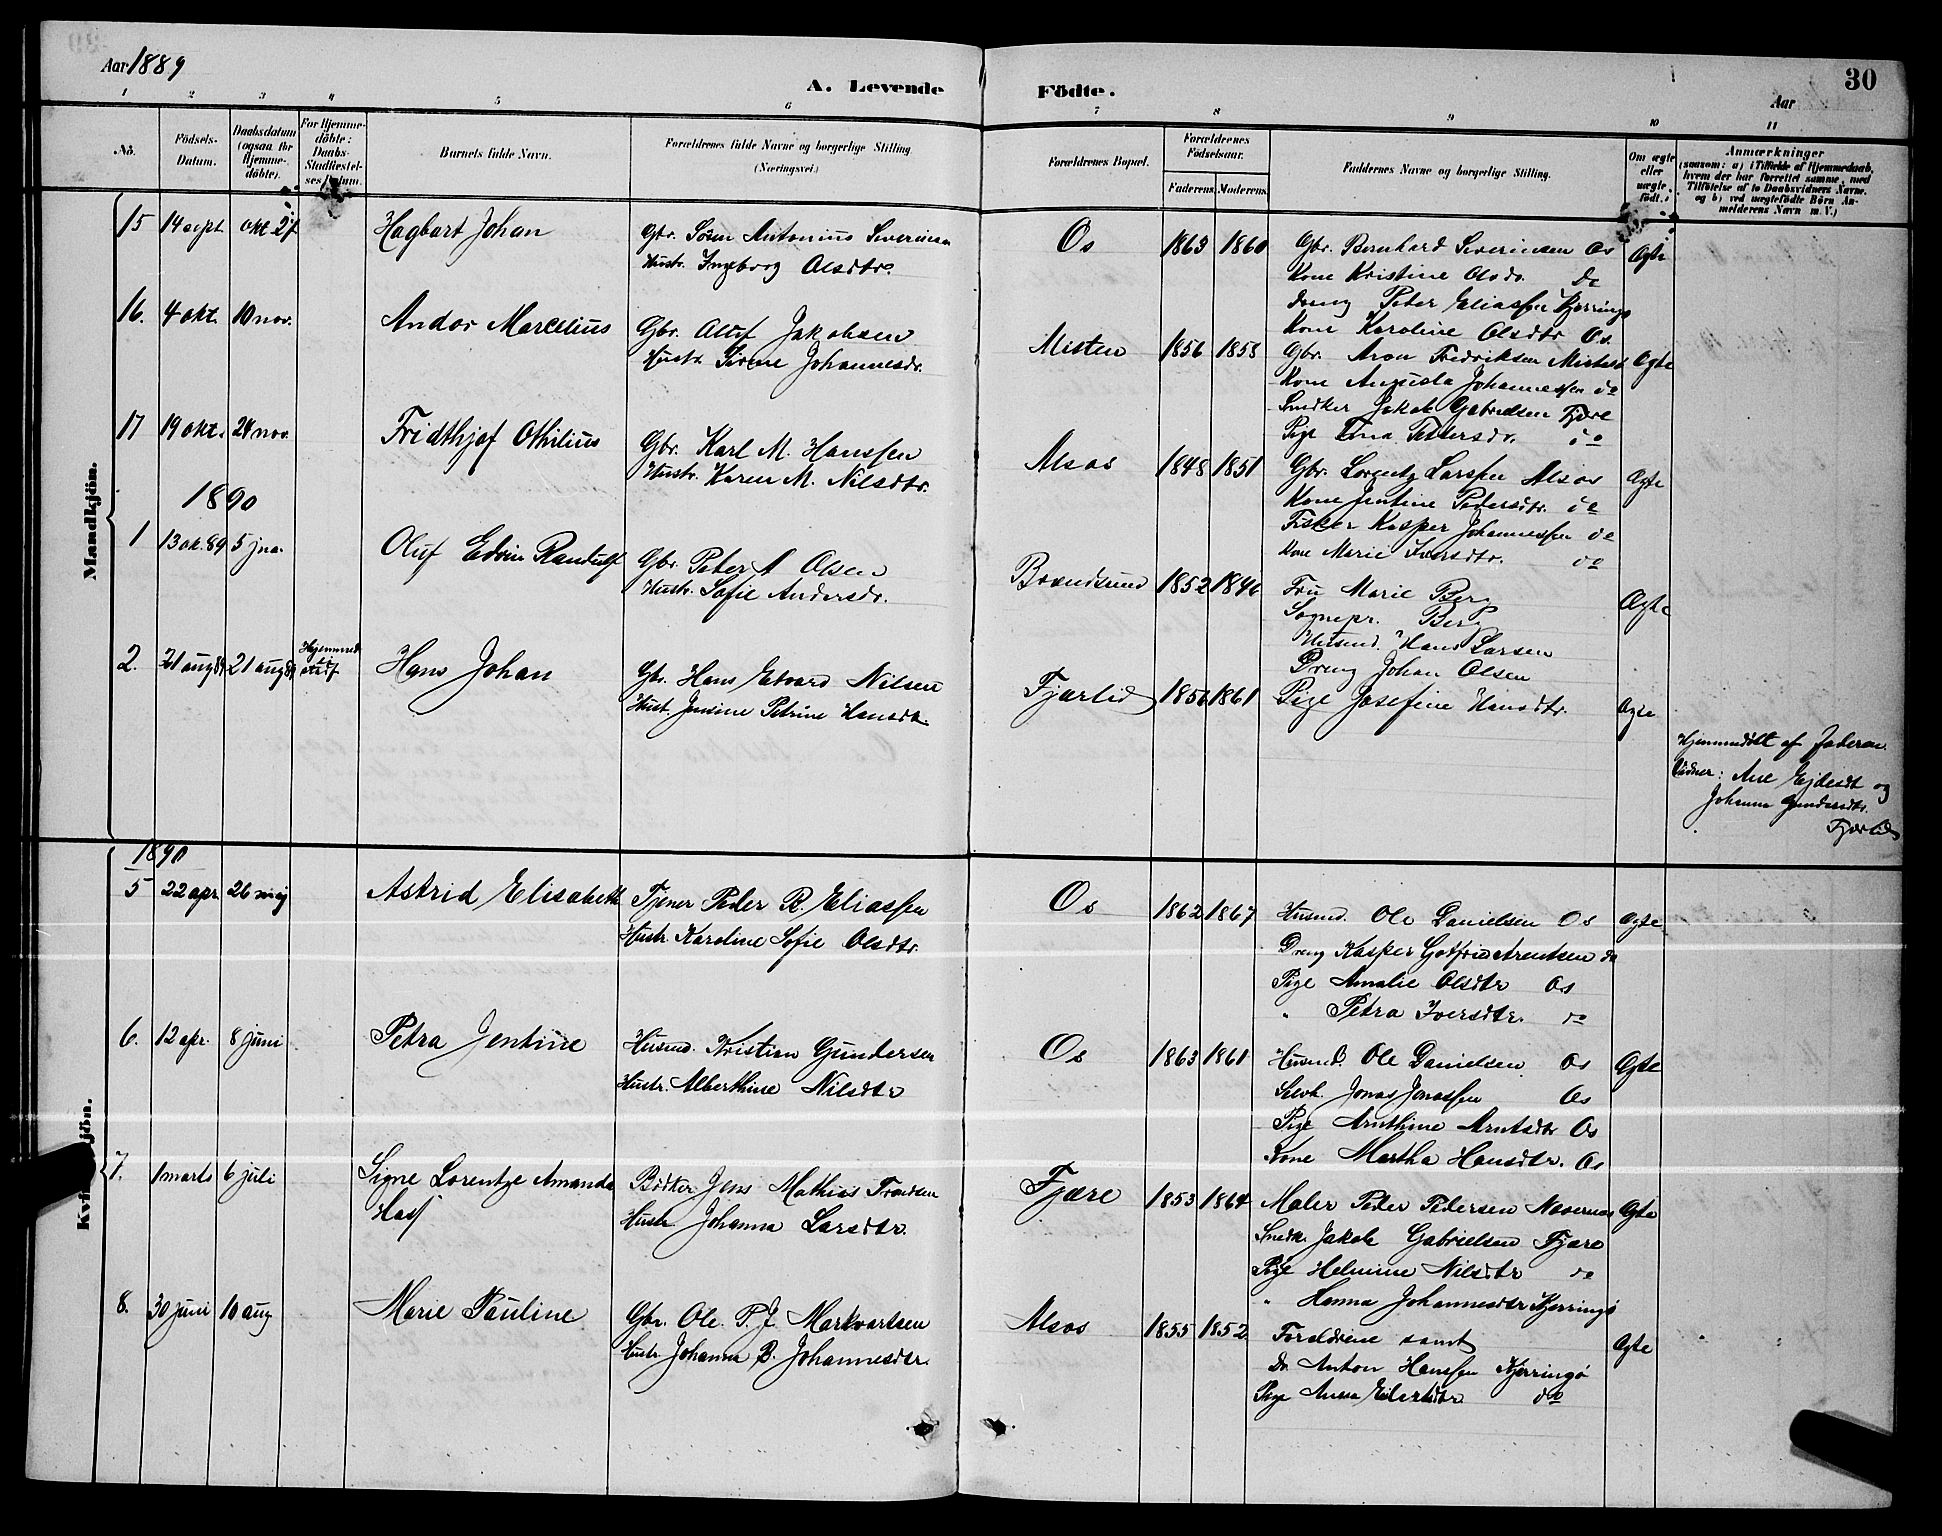 Aar 1889
A. Levende Födte.
Aar
30
1 2 3 4 5 6 7 8 9 10 11
No.
Födsels-Datum.
Daabsdatum (ogsaa for Hjemme-döbte).
For Hjemme-döbte: Daabs-Stadfæstel-ses Datum.
Barnets fulde Navn.
Forældrenes fulde Navne og borgerlige Stilling (Næringsvei.)
Forældrenes Bopæl.
Forældrenes Födselsaar.
Faderens. Moderens.
Faddernes Navne og borgerlige Stilling.
Om ægte eller uægte födt.
Anmærkninger
(saasom: a) i Tilfælde af Hjemmedaab, hvem der har forrettet samme, med Tilföielse af to Daabsvidners Navne, og b) ved uægtefödte Börn Anmelderens Navn m. V.)
Mandkjön.
15 14 sept. okt 27 Hagbart Johan
Gbr. Sören Antonius Severinsen
Hustr. Ingeborg Olsdtr.
Os 1863 1860
Gbr. Bernhard Severinsen Os
Kone Kristine Olsdr. do
Dreng Peder Eliassen Kjerringø
Kone Karoline Olsdtr Os
Ægte
16. 4 okt. 10 nov. Andor Marcelius
Gbr. Oluf Jakobsen
Hustr. Sirene Johannesdr.
Misten 1856 1858
Gbr. Aron Fredriksen Misten
Kone Augusta Johannessen do
Snedker Jakob Gabrielsen Fjære
Pige Tina Pedersdr. do
Ægte
17 19 okt. 24 nov. Fridthjof Othilius
Gbr. Karl M. Hanssen
Hustr. Karen M. Nilsdtr.
Alsos 1848 1851
Gbr. Lorentz Larssen Alsos
Kone Jentine Pedersdtr. do
Fisker Kasper Johannessen do
Kone Marie Iversdtr. do
Ægte
1890
1 13 ok. 89 5 jna. Oluf Edvin Randulf
Gbr. Peter A Olsen
Hustr. Sofie Andersdr.
Brændsund 1852 1846
Fru Marie Berg
Sognepr. Berg
Husmd. Hans Larsen
Dreng Johan Olsen
Ægte
2. 21 aug 89 21 aug 89 Hans Johan
Gbr. Hans Edvard Nilsen
Hust. Jensine Petrine Hansdtr.
Fjærlid 1856 1861
Pige Josefine Hansdtr.
Ægte
Hjemmedöbt af Faderen.
Vidner: Ane Ejdesdt og
Johanna Gundersdtr.
Fjærlid
Kvindkjön.
1890
5 22 apr. 26 maj Astrid Elisabeth
Tjener Peder R. Eliassen
Hustr. Karoline Sofie Olsdtr.
Os 1862 1867
Husmd. Ole Danielsen Os
Dreng Kasper Gotfrid Arentsen do
Pige Amalie Olsdtr Os
" Petra Iversdtr. do
Ægte
6. 12 apr. 8 juni Petra Jentine
Husmd. Kristian Gundersen
Hustr. Alberthine Nilsdtr
Os 1863 1861
Husmd. Ole Danielsen Os
Selvh. Jonas Jonassen Os
Pige Arnthine Arntsdtr Os
Kone Martha Hansdtr. Os
Ægte
7. 1 marts 6 juli Signe Lorentze Amanda
Hass
Bødker Jens Mathias Trondsen
Hustr. Johanna Larsdtr.
Fjære 1853 1864
Maler Peder Pedersen Nævernes
Snedk. Jakob Gabrielsen Fjære
Pige Helmine Nilsdtr do
" Hanna Johannesdtr Kjerringø
Ægte
8. 30 juni 10 aug Marie Pauline
Gbr. Ole P. J. Markvartsen
Hustr. Johanna B. Johannesdtr.
Alsos 1855 1852
Forældrene samt
Dr. Anton Hanssen Kjerringø
Pige Anna Eilertsdtr do
Ægte